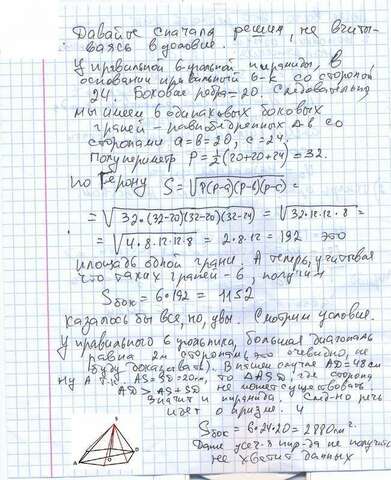 Давайте сначала решим, не вчиты-
ваясь в условие.
У правильной 6-угольной пирамиды, в
основании правильный 6-к со стороной
24. Боковое ребро = 20. Следовательно
мы имеем 6 одинаковых боковых
граней - равнобедренных Δ-в со
сторонами a=b=20, c=24.
Полупериметр P=½(20+20+24)=32.
По Герону S=√P(P-a)(P-b)(P-c) =
=√32·(32-20)(32-20)(32-24) = √32·12·12·8 =
=√4·8·12·12·8 = 2·8·12 = 192 это
площадь одной грани. А теперь, учитывая
что таких граней - 6, получим
Sбок = 6·192 = 1152
казалось бы все, но, увы. Смотрим условие.
У правильного 6-угольника, большая диагональ
равна 2м сторонам (это очевидно, не
буду доказывать). В нашем случае AD=48см
Ну а т.к. AS=SD=20см, то ΔASD, где сторона
AD > AS+SD не может существовать.
Значит и пирамида. След-но речь
идет о призме. и
Sбок = 6·24·20 = 2880см².
Даже усеч-я пир-да не получится
не хватит данных
S
A
D